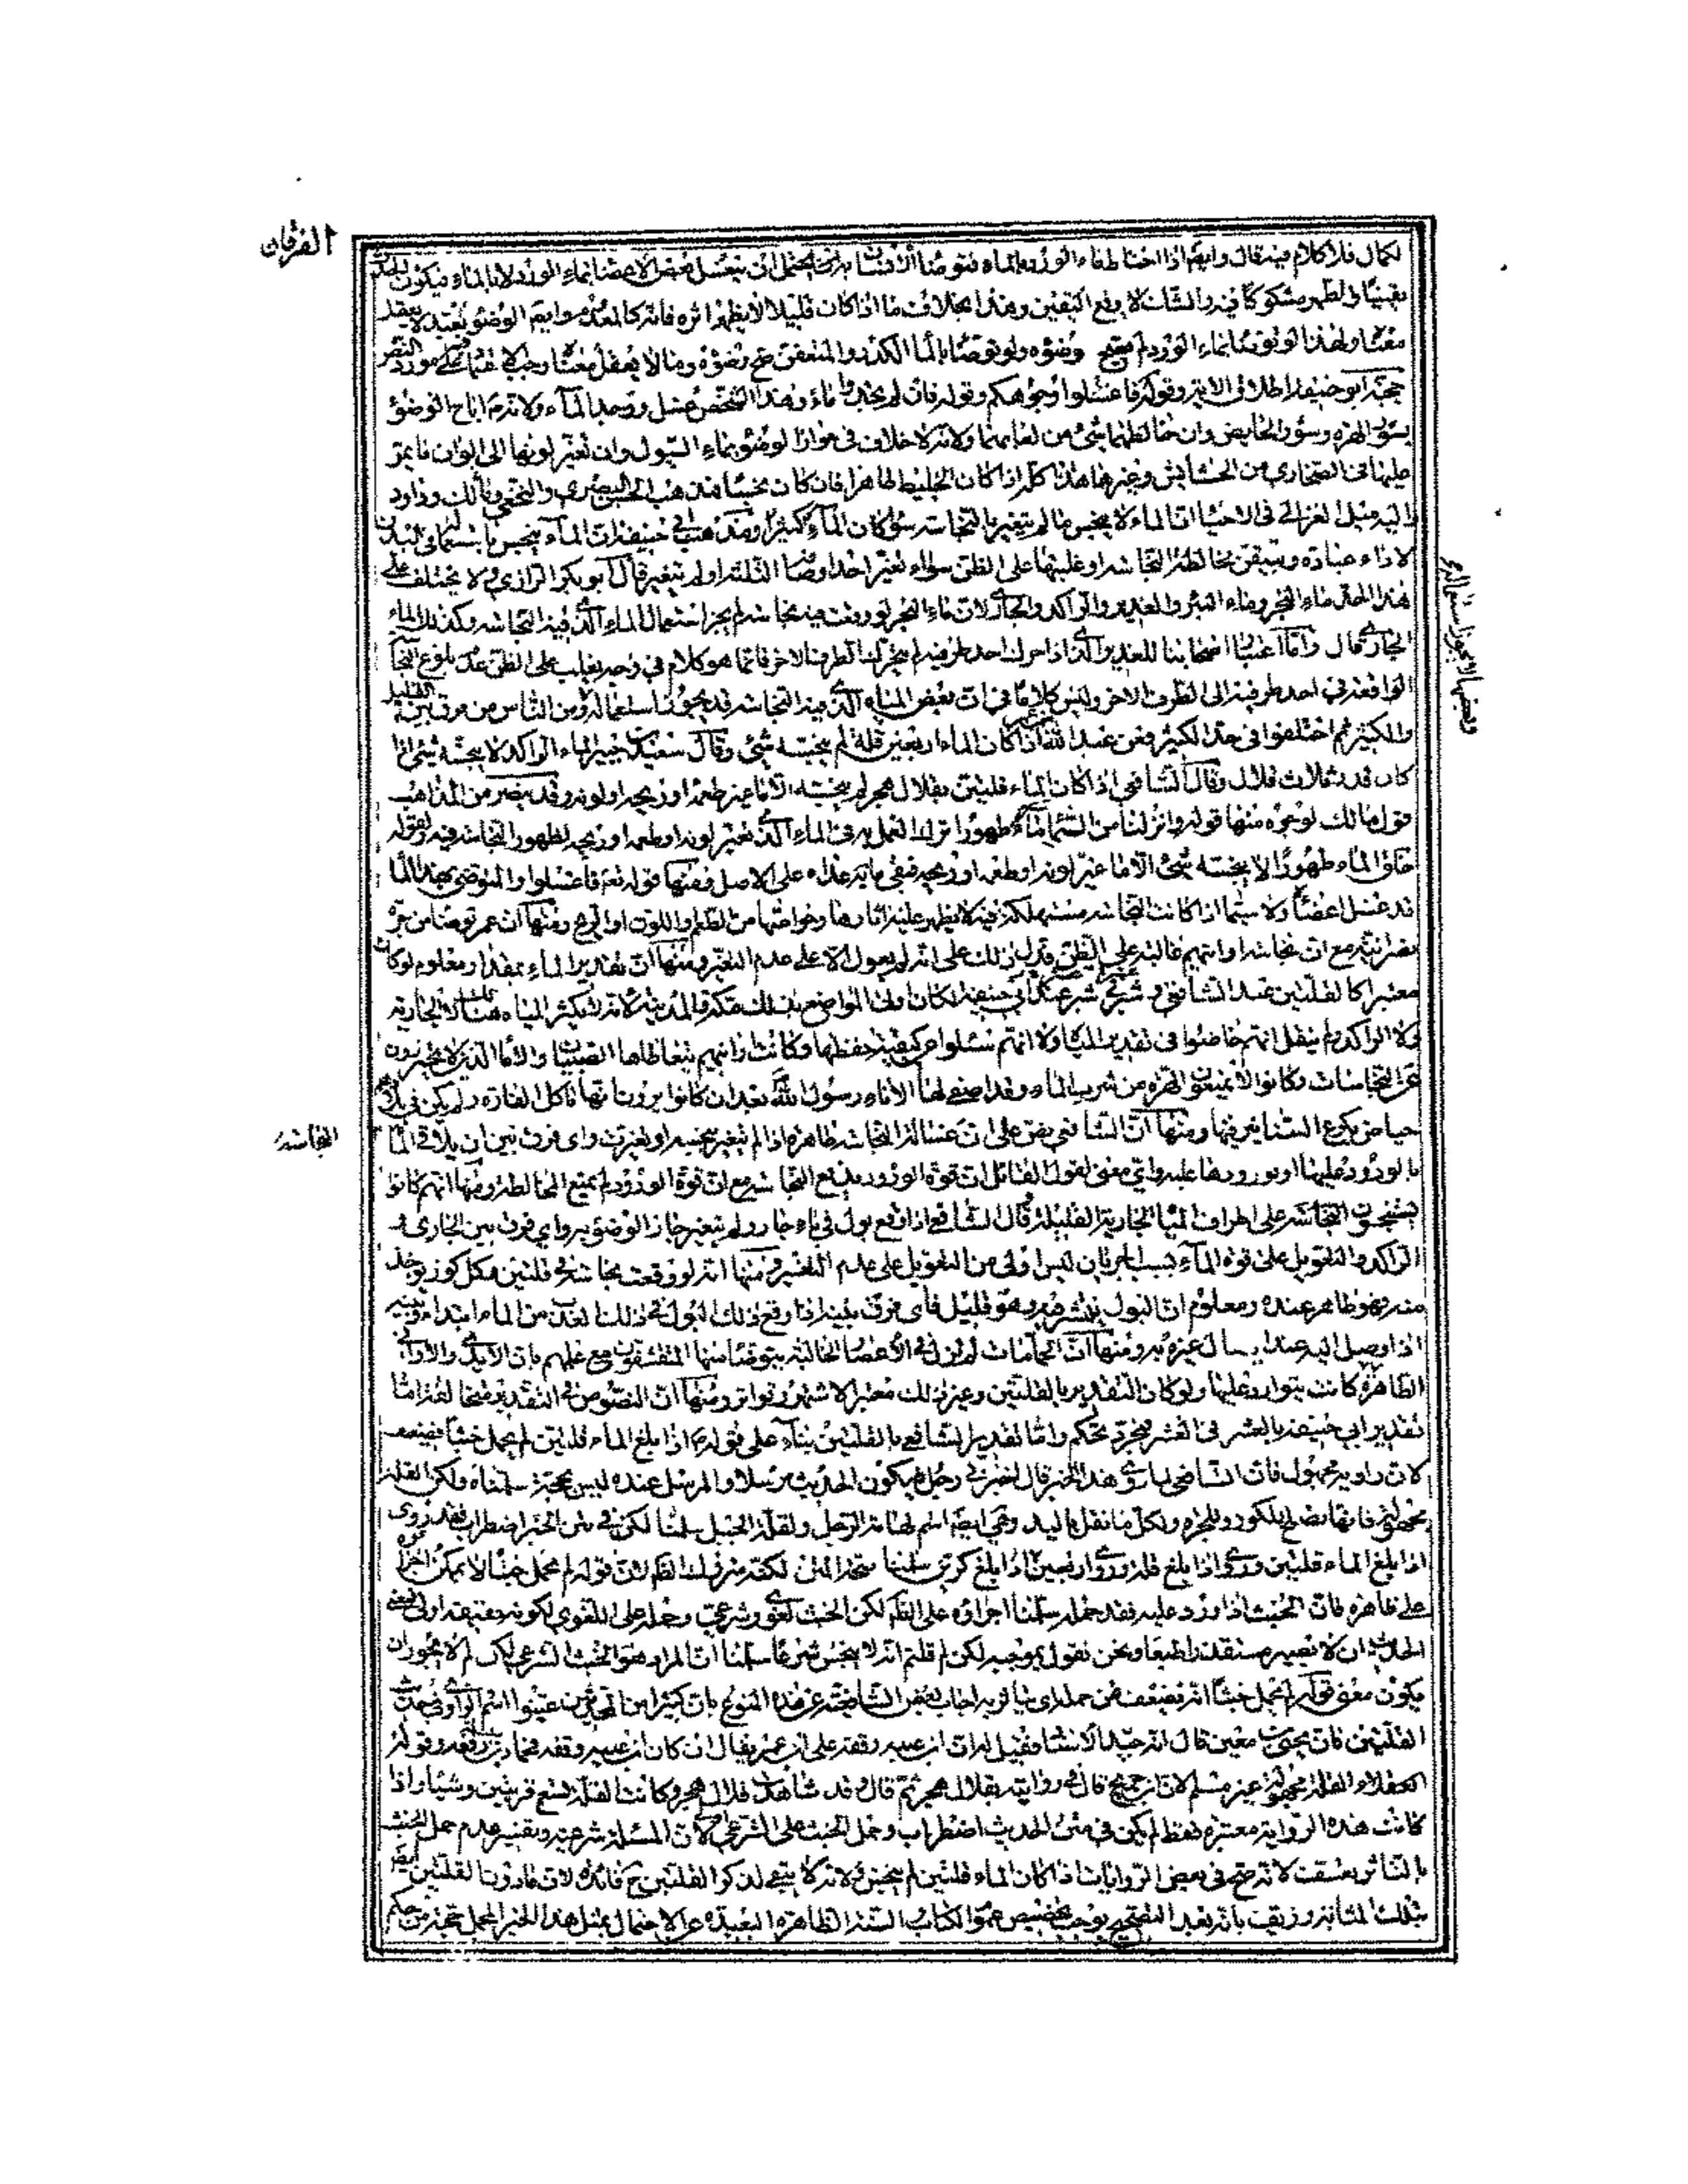 الفرقان
لكمال فلا كلام فيه قال وايضا اذا اختلط ماء الورد بالماء فتوضأ الانسان به يحتمل ان ينغسل بعض الاعضاء بماء الورد لا بالماء فيكون الحدث
يقينيا والطهر مشكوكا فيه والشك لا يرفع اليقين وهذا بخلاف ما اذا كان قليلا لا يظهر اثره فانه كالمعدوم وايضا الوضوء تعبد لا يعقل
معناه ولهذا لو توضأ بماء الورد لم يصح وضوءه ولو توضأ بالماء الكدر والمتعفن صح وضوءه وما لا يعقل معناه وجب الاعتماد فيه على مورد النص
حجة ابو حنيفة اطلاق الاية وقوله فاغسلوا وجوهكم وقوله فان لم تجدوا ماء وهذا الشخص غسل ووجد الماء ولانه ص اباح الوضوء
بسؤر الهرة وسؤر الحائض وان خالطهما شئ من لعابهما ولانه لا خلاف في جواز الوضوء بماء السيول وان تغير لونها الى الوان ما يمر
عليها في الصحاري من الحشايش وغيرها هذا كله اذا كان الخليط طاهرا فان كان نجسا فذهب الحسن البصري والنخعي ومالك وداود
واليه ميل الغزالي في الاحياء ان الماء لا ينجس ما لم يتغير بالنجاسة سواء كان الماء كثيرا ومذهب ابي حنيفة ان الماء ينجس باستعماله في البدن
لاداء عبادة وبتيقن مخالطة النجاسة او غلبتها على الظن سواء تغير احد اوصافه الثلثة او لم يتغير قال ابو بكر الرازي ولا يختلف على
هذا الحد ماء البحر وماء البئر والغدير والراكد والجاري لان ماء البحر لو وقعت فيه نجاسة لم يجز استعمال الماء الذي فيه النجاسة وكذلك الماء
الجاري قال واما اعتبار اصحابنا للغدير الذي اذا حرك احد طرفيه لم يتحرك الطرف الاخر فانما هو كلام في وجه يغلب على الظن عدم بلوغ النجاسة
الواقعة في احد طرفيه الى الطرف الاخر وليس كلاما في ان بعض المياه الذي فيه النجاسة قد يجوز استعماله ومن الناس من فرق بين القليل
والكثير ثم اختلفوا في حد الكثير فعن عبد الله اذا كان الماء اربعين قلة لم ينجسه شئ وقال سعيد بن جبير الماء الراكد لا ينجسه شئ اذا
كان قدر ثلاث قلال وقال الشافعي اذا كان الماء قلتين بقلال هجر لم ينجسه الا ما غير طعمه او ريحه او لونه وقد ينصر من المذاهب
قول مالك لوجوه منها قوله وانزلنا من السماء ماء طهورا ترك العمل به في الماء الذي تغير لونه او طعمه او ريحه لظهور النجاسة فيه ولقوله
خلق الماء طهورا لا ينجسه شئ الا ما غير لونه او طعمه او ريحه فبقي ما عداه على الاصل ومنها قوله تعم فاغسلوا والمتوضئ بهذا الماء
قد غسل اعضاءه ولا سيما اذا كانت النجاسة مستهلكة فيه لا يظهر عليه اثارها وخواصها من الطعم واللون او الريح ومنها ان عمر توضأ من جرة
نصرانية مع ان نجاسة اوانيهم غالبة على الظن فدل ذلك على انه لم يعول الا على عدم التغير ومنها ان تقدير الماء بمقدار معلوم لو كان
معتبرا كالقلتين عند الشافعي وعشر في عشر عند ابي حنيفة لكان اولى المواضع بذلك مكة والمدينة لانه لا تكثر المياه هناك لا الجارية
ولا الراكدة ولم ينقل انهم خاضوا في تقدير المياه ولا انهم سئلوا عن كيفية حفظها وكانت اوانيهم يتعاطاها الصبيان والاماء الذين لا يحترزون
عن النجاسات وكانوا لا يمنعون الهرة من شرب الماء وقد اصغى لها الاناء رسول الله بعد ان كانوا يرون انها تاكل الفارة ولم يكن في بلادهم
حياض يكرع السنانير فيها ومنها ان الشافعي نص على ان غسالة النجاسة طاهرة اذا لم تتغير بنجسه او تغيرت واي فرق بين ان يلاقي الماء
النجاسة
بالورود عليها او بورودها عليه واي معنى لقول القائل ان قوة الورود يدفع النجاسة مع ان قوة الورود لم يمنع المخالطة ومنها انهم كانوا
يستنجون على اطراف المياه الجارية القليلة قال الشافعي اذا وقع بول في ماء جار ولم يتغير جاز الوضوء به واي فرق بين الجاري و
الراكد والتعويل على قوة الماء بسبب الجريان ليس اولى من التعويل على عدم التغير ومنها انه لو وقعت نجاسة في قلتين فكل كوز يوخذ
منه فهو طاهر عنده ومعلوم ان البول ينتشر فيه وهو قليل فاي فرق بينه اذا وقع ذلك البول في ذلك القدر من الماء ابتداء وبينه
اذا وصل اليه عند اتصال غيره به ومنها ان الحمامات لم تزل في الاعصار الخالية يتوضأ منها المتقشفون مع علمهم بان الايدي والاواني
الطاهرة كانت يتوارد عليها ولو كان التقدير بالقلتين وغير ذلك معتبرا لاشتهر وتواتر ومنها ان النصوص في التقدير متخالفة اما
تقدير ابي حنيفة بالعشر في العشر فمجرد تحكم واما تقدير الشافعي بالقلتين بناء على قوله ع اذا بلغ الماء قلتين لم يحمل خبثا فضعيف
لان راويه مجهول فان الشافعي لما روى هذا الخبر قال اخبرني رجل فيكون الحديث مرسلا والمرسل عنده ليس بحجة سلمناه ولكن القلة
مجهولة فانها تصلح للكوز وللجرة ولكل ما نقل باليد وهي ايضا اسم لهامة الرجل ولقلة الجبل سلمنا لكن في متن الخبر اضطراب فقد روى
اذا بلغ الماء قلتين وروي اذا بلغ قلة وروي اربعين اذا بلغ كرتين سلمنا صحة المتن لكنه متروك الظاهر لان قوله لم يحمل خبثا لا يمكن اجراؤه
على ظاهره فان الخبث اذا ورد عليه فقد حمله سلمنا اجراؤه على الظاهر لكن الخبث لغوي وشرعي وحمله على اللغوي لكونه حقيقة اولى فمعنى
الحديث ان لا يصير مستقذرا طبعا ونحن نقول بموجبه لكن لم قلتم انه لا ينجس شرعا سلمنا ان المراد هو الخبث الشرعي لكن لم لا يجوز ان
يكون معنى قوله لم يحمل خبثا انه يضعف عن حمله اي يتاثر به اجاب بعض الشافعية عن هذه المنوع بان كثيرا من المحدثين عينوا اسم الراوي في حديث
القلتين فان يحيى بن معين قال انه جيد الاسناد فقيل له ان ابن علية وقفه على ابن عمر فقال ان كان ابن علية وقفه فحماد بن سلمة رفعه وقوله
القلة مجهولة غير مسلم لان ابن جريج قال في روايته بقلال هجر ثم قال وقد شاهدت قلال هجر وكانت القلة تسع قربتين وشيئا واذا
كانت هذه الرواية معتبرة فقط لم يكن في متن الحديث اضطراب وحمل الخبث على الشرعي اولى لان المسئلة شرعية وتفسير عدم حمل الخبث
بالتاثر تعسف لانه صح في بعض الروايات اذا كان الماء قلتين لم ينجس ولانه لا يبقى لذكر القلتين ح فائدة لان ما دون القلتين ايضا
بتلك المثابة وزيفت بانه بعد التصحيح يوجب تخصيص عموم الكتاب والسنة الظاهرة البعيدة عن الاحتمال بمثل هذا الخبر المجمل